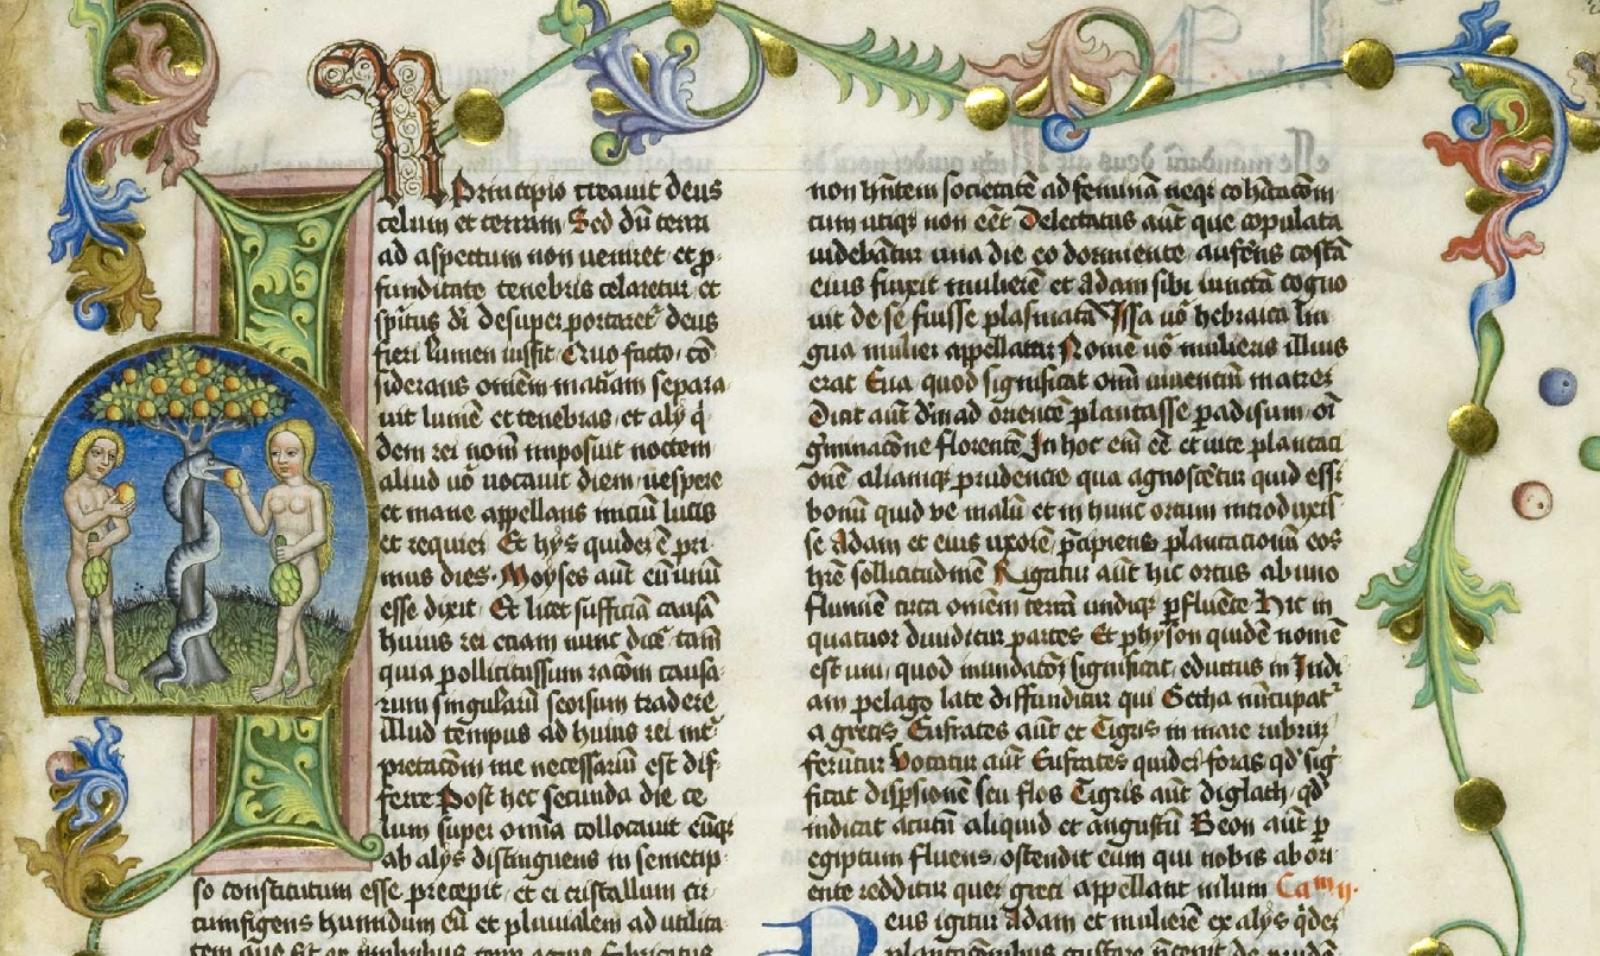 In Principio creauit deus
celum et terram Sed dū terra
ad aspectum non ueniret et p̱-
funditate tenebris celaretur et
sp̄itus dī desuper portaret᷑ deus
fieri lumen iussit Quo facto cō
siderans omēm mat̄iam separa-
uit lumē et tenebras et alij q̇
dem rei nom̄ imposuit noctem
aliud uō uocauit diem uespere
et mane appellans iniciū lucis
et requiei Et hijs quidē ē pri-
mus dies Moyses aūt eū unū
esse dixit Et licet sufficiā causā
huius rei eciam nunc dicē tam̄
quia pollicitussum rac̄om causa-
rum singularū seorsum tradere
illud tempus ad huius rei int̄-
pretac̄om me necessariū est dif-
ferre Post hec secunda die ce
lum super omīa collocauit eūqꝫ
ab alijs distinguens in semetip-
so constitutum esse precepit et ei cristallum cir-
cumfigens humidum eū et pluuialem ad utilita-
tem que fit
non hn̄tem societatē ad feminā neqꝫ co
cum utiqꝫ non eēt Delectatus aūt que copulata
uidebāt᷑ una die eo dormiente aufer̄ns costā
eius finxit mulierē et Adam sibi iunctā cogno
uit de se fuisse plasmatā Issa uō hebraica lin
gua mulier appellat᷑ Nomē uō mulieris illius
erat Eua quod significat om̄ uiuentiū matreꝫ
Dicit aūt dm̄ ad orientē plantasse padisum oī
g̃minac̄one florentē In hoc eīm eē et uite plantaci
onē aliamqꝫ prudencie qua agnoscēt᷑ quid esset
bonū quid ve malū et in hunc ortum introduxis-
se Adam et eius uxorē p̄cipiens plantacionū eos
hr̄e sollicitudinē Rigatur aūt hic ortus ab uno
flumīe circa omēm terrā undiqꝫ p̱fluente Hic in
quatuor diuiditur partes Et physon quidē nomē
est uni quod significat eductus in Indi
am pelago late diffunditur qui Getha nūcupat᷑
a grecis Eufrates aūt et Tigris in mare rubrū
ferūtur Vocatur aūt Eufrates quidē foras qd̄ sig-
ficat disp̱sionē seu flos Tigris aūt diglath qd̄
indicat acutū aliquid et angustū Geon aūt p̱
egiptum fluens ostendit eum qui nobis ab ori-
ente redditur queꝫ greci appellant nilum
Deus igitur Adam et mulierē ex alijs q̇deꝫ
plantac̄onibus gustare